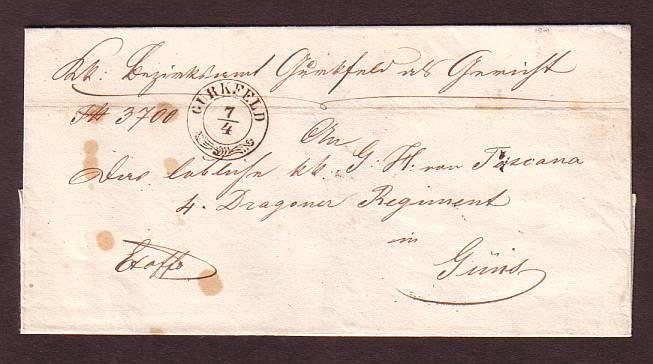 kk: Bezirksamt Gurkfeld als Gericht
3700
GURKFELD
7/4
An
löbliche kk. G. H. von Toscana
4. Dragoner Regiment
in
Exoffo
Güns